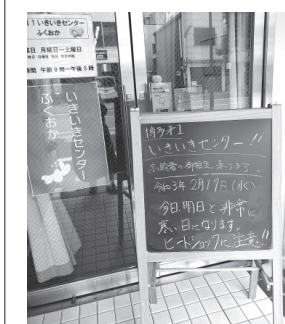 11いきいきセンター
ふくおか
日 月曜日～土曜日
時間 午前9時～午後5時
いきいきセンター
ふくおか
博多第1
いきいきセンター!!
高齢者の御相談 承ります。
令和3年 2月17日(水)
今日、明日と非常に
寒い日になります。
ヒートショックに注意!!